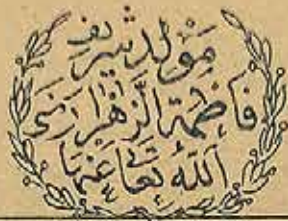 مَوْلِد شَرِيف
فَاطِمَةُ الزَّهْرَا رَضِيَ
اللّٰهُ تَعَالَى عَنْهَا